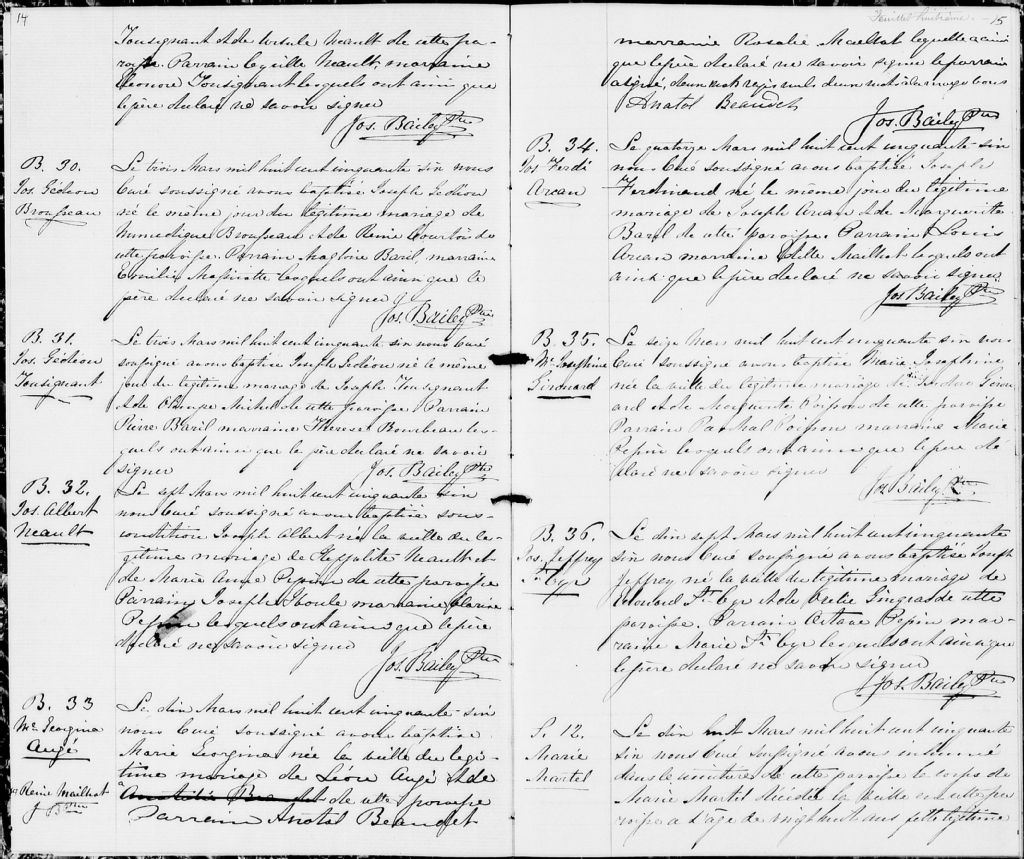 14
Tousignant et de Ursule Neault de cette pa-
roisse. Parrain Cyrille Neault, marraine
Eleonore Tousignant lesquels ont ainsi que
le père déclaré ne savoir signer
Jos. Bailey Ptre
B. 30.
Jos. Gédéon
Brousseau
Le trois Mars mil huit cent cinquante-six nous
Curé soussigné avons baptisé Joseph Gédéon
né le même jour du légitime mariage de
Brousseau et de Rénie Courtois de
cette paroisse. Parrain Magloire Baril, marraine
Emilie lesquels ont ainsi que le
père déclaré ne savoir signer
Jos. Bailey Ptre
B. 31.
Jos. Gédéon
Tousignant
Le trois Mars mil huit cent cinquante six nous Curé
soussigné avons baptisé Joseph Gédéon né le même
jour du légitime mariage de Joseph Tousignant
et de Michel de cette paroisse. Parrain
Pierre Baril marraine Therese Bourbeau les-
quels ont ainsi que le père déclaré ne savoir
signer
Jos. Bailey Ptre
B. 32.
Jos. Albert
Neault
Le sept Mars mil huit cent cinquante six
nous Curé soussigné avons baptisé sous-
condition Joseph Albert né la veille du lé-
gitime mariage de Hyppolite Neault et
de Marie Anne Pepin de cette paroisse
Parrain Joseph marraine Clarisse
Pepin lesquels ont ainsi que le père
déclaré ne savoir signer
Jos. Bailey Ptre
B. 33
Me Georgina
Augé
Le dix Mars mil huit cent cinquante-six
nous Curé soussigné avons baptisé
Marie Georgina née la veille du légi-
time mariage de Léon Augé et de
de cette paroisse
Parrain Anatol Beaudet
Rénie Mailhot
J B Ptre
Feuillet huitième. 15
marraine Rosalie Mailhot laquelle a ainsi
que le père déclaré ne savoir signer le parrain
a signé,
Anatol Beaudet
Jos. Bailey Ptre
B. 34.
Jos Ferdi
Arcan
Le quatorze Mars mil huit cent cinquante-six
nous Curé soussigné avons baptisé Joseph
Ferdinand né le même jour du légitime
mariage de Joseph Arcan et de Marguerite
Baril de cette paroisse. Parrain Louis
Arcan marraine Mailhot lesquels ont
ainsi que le père déclaré ne savoir signer
Jos Bailey Ptre
B. 35.
Me Josephine
Girouard
Le seize Mars mil huit cent cinquante six nous
Curé soussigné avons baptisé Marie Josephine
née la veille du légitime mariage de Girou
ard et de Marguerite Poisson de cette paroisse
Parrain Paschal Poisson marraine Marie
Pepin lesquels ont ainsi que le père dé
claré ne savoir signer
Jos Bailey Ptre
B. 36.
Jos. Jeffrey
St Cyr
Le dix sept Mars mil huit cent cinquante
six nous Curé soussigné avons baptisé Joseph
Jeffrey né la veille du légitime mariage de
Edouard St Cyr et de Gingras de cette
paroisse. Parrain Octave Pepin mar-
raine Marie St Cyr lesquels ont ainsi que
le père déclaré ne savoir signer
Jos. Bailey Ptre
S. 12.
Marie
Martel
Le dix huit Mars mil huit cent cinquante
six nous Curé soussigné avons inhumé
dans le cimetière de cette paroisse le corps de
Marie Martel décédée la veille en cette pa
roisse a l'age de vingt huit ans fille légitime